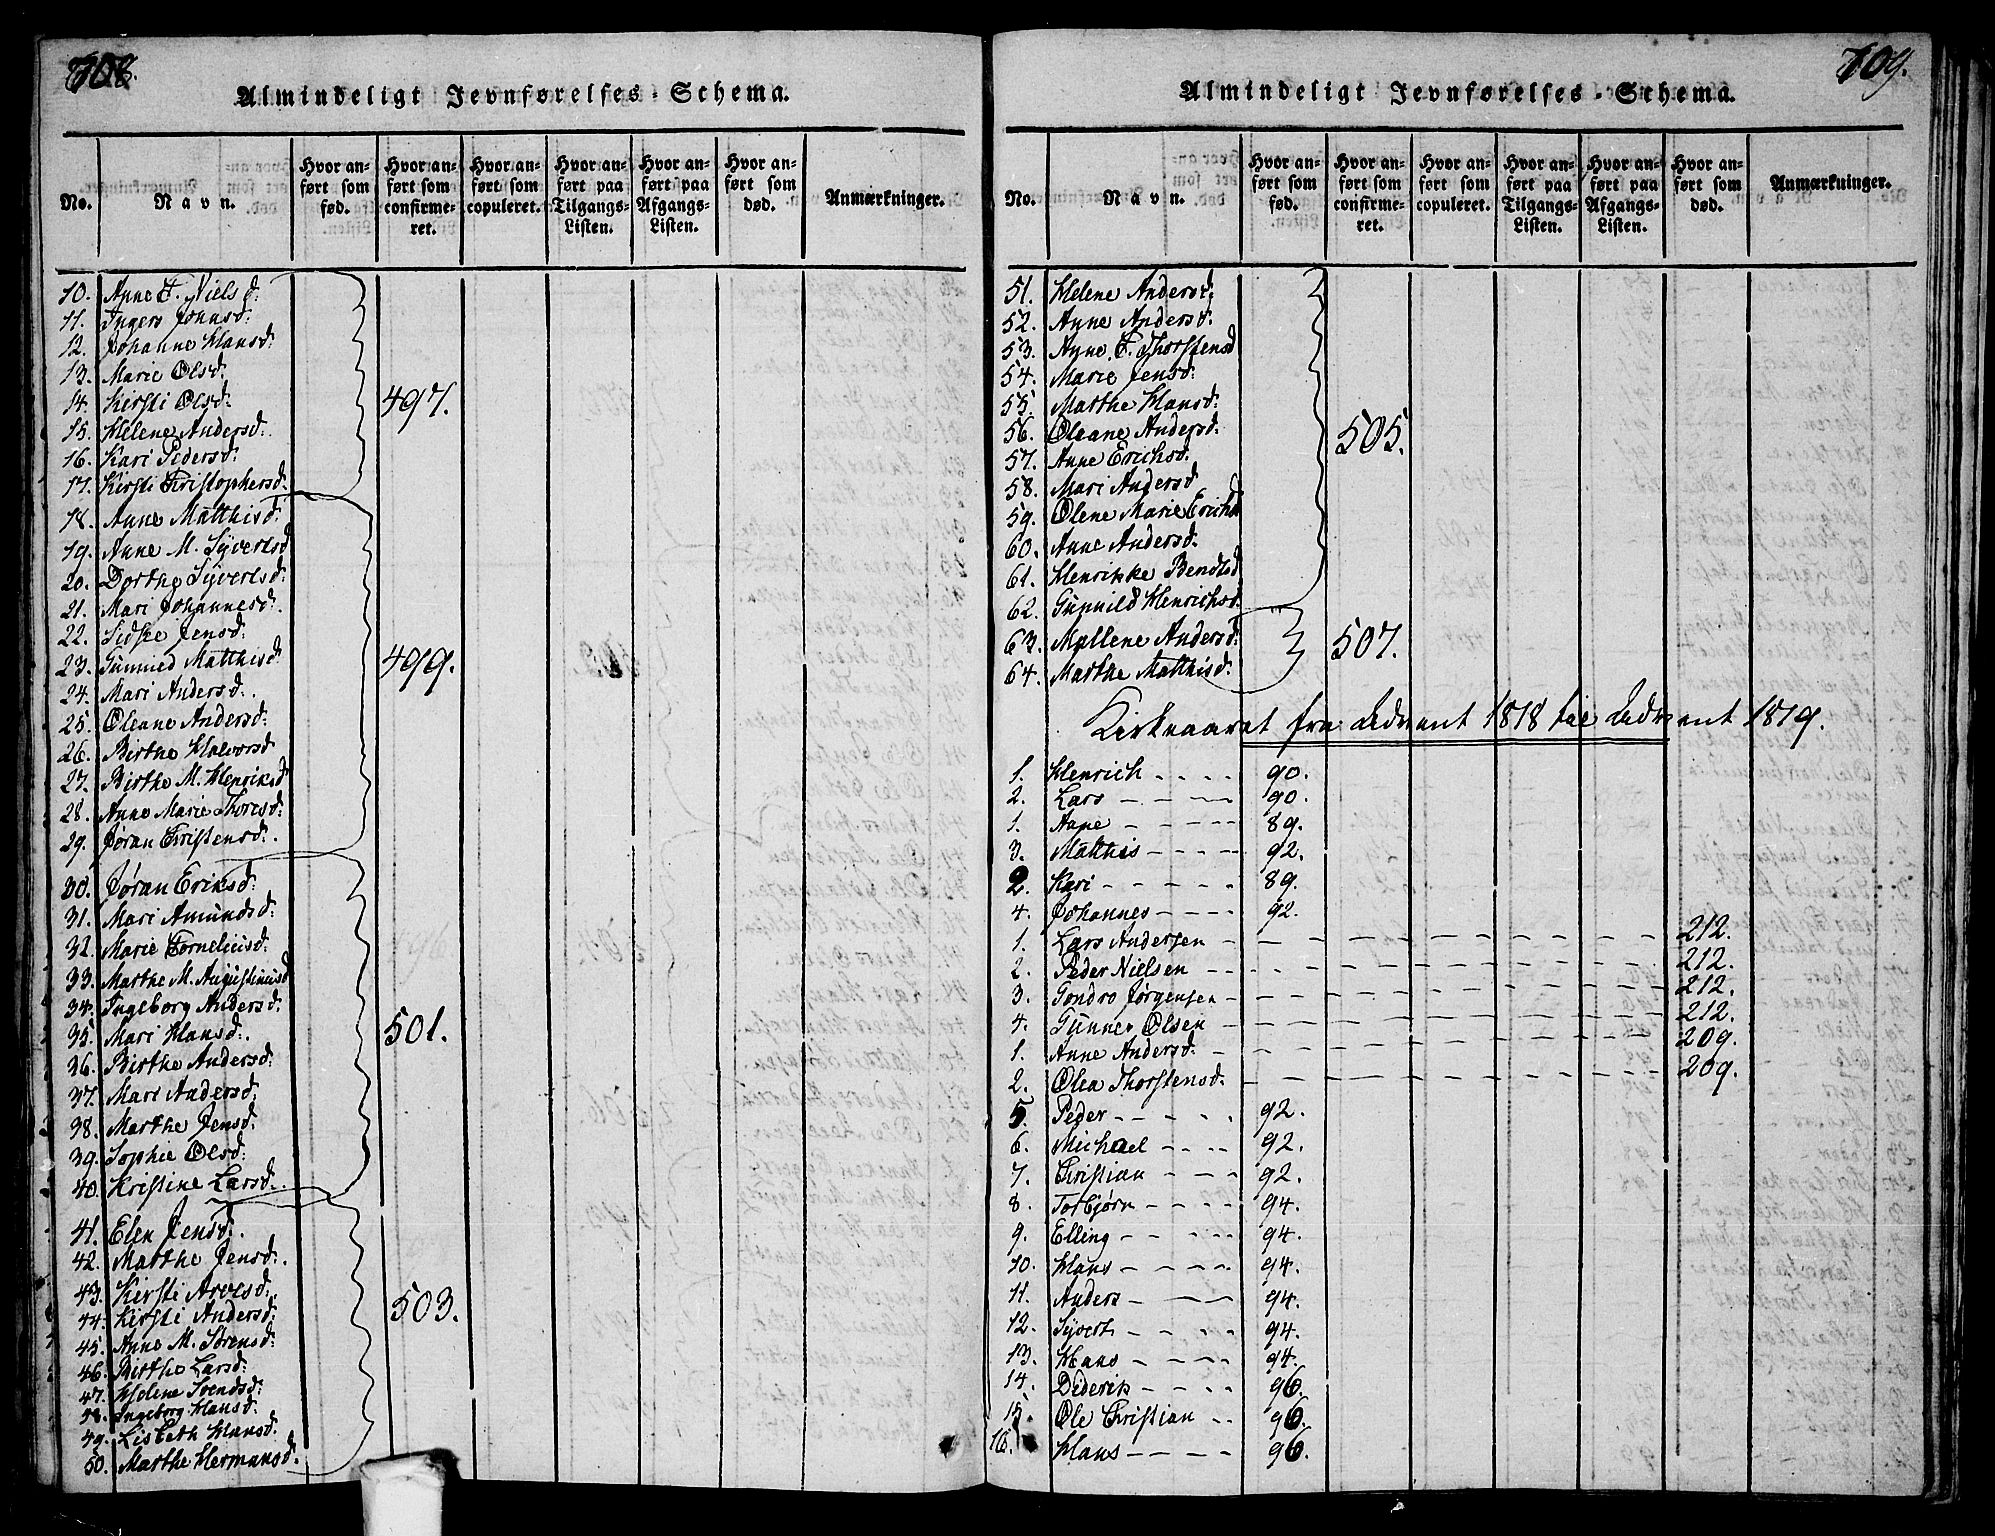 708.
Almindeligt Jevnførelses-Schema.
No. Navn. Hvor anført som fød. Hvor anført som confirmeret. Hvor anført som copuleret. Hvor anført paa Tilgangs-Listen. Hvor anført paa Afgangs-Listen. Hvor anført som død. Anmærkninger.
10. Anne F. Nielsd:
11. Ingers Johnsd:
12. Johanne Hansd:
13. Marie Olsd:
14. Kirsti Olsd: 497.
15. Helene Andersd:
16. Kari Pedersd:
17. Kirsti Christophersd:
18. Anne Matthisd:
19. Anne M. Syvertsd
20. Dorthe Syvertsd:
21. Mari Johannesd:
22. Sidse Jensd:
23. Gunnild Matthisd: 499.
24. Mari Andersd:
25. Oleane Andersd:
26. Birthe Halvorsd:
27. Birthe M. Henriksd
28. Anne Marie Thoresd:
29. Jøran Christensd:
30. Jøran Eriksd:
31. Mari Amundsd:
32. Marie Corneliusd:
33. Marthe M. Augustinusd
34. Ingeborg Andersd:
35. Mari Hansd: 501.
36. Birthe Andersd:
37. Mari Andersd:
38. Marthe Jensd:
39. Sophie Olsd:
40. Kristine Larsd:
41. Elen Jensd:
42. Marthe Jensd:
43. Kirsti Arvesd:
44. Kirsti Andersd: 503.
45. Anne M. Sørensd:
46. Birthe Larsd:
47. Helene Svendsd:
48. Ingeborg Hansd:
49. Lisbeth Hansd:
50. Marthe Hermansd:
709.
Almindeligt Jevnførelses-Schema.
No. Navn. Hvor anført som fød. Hvor anført som confirmeret. Hvor anført som copuleret. Hvor anført paa Tilgangs-Listen. Hvor anført paa Afgangs-Listen. Hvor anført som død. Anmærkninger.
51. Helene Andersd:
52. Anne Andersd:
53. Anne C. Thorstensd
54. Marie Jensd:
55. Marthe Hansd:
56. Oleane Andersd: 505.
57. Anne Erichsd.
58. Mari Andersd
59. Olene Marie Erichsd
60. Anne Andersd:
61. Henrikke Bendtsd
62. Gunnild Henrichsd:
63. Mallene Andersd: 507.
64. Marthe Matthisd:
Kirkeaaret fra Advent 1818 til Advent 1819.
1. Henrich - - - - 90.
2. Lars - - - 90.
1. Anne - - - - 89.
3. Matthis - - - - 92.
2. Kari - - - - - 89.
4. Johannes - - - - 92.
1. Lars Andersen - - - - - - 212.
2. Peder Nielsen - - - - - - 212.
3. Gondro Jørgensen - - - - - - 212.
4. Gunner Olsen - - - - - - 212.
1. Anne Andersd. - - - - - - 209.
2. Olea Thorstensd. - - - - - - 209.
5. Peder - - - - - 92.
6. Michael - - - - 92.
7. Christian - - - - 92.
8. Torbjørn - - - - 94.
9. Elling - - - - 94.
10. Hans - - - - - 94.
11. Anders - - - 94.
12. Syvert - - - - 94.
13. Hans - - - - 94.
14. Diderik - - - - 96.
15. Ole Christian - - 96.
16. Hans - - - - 96.